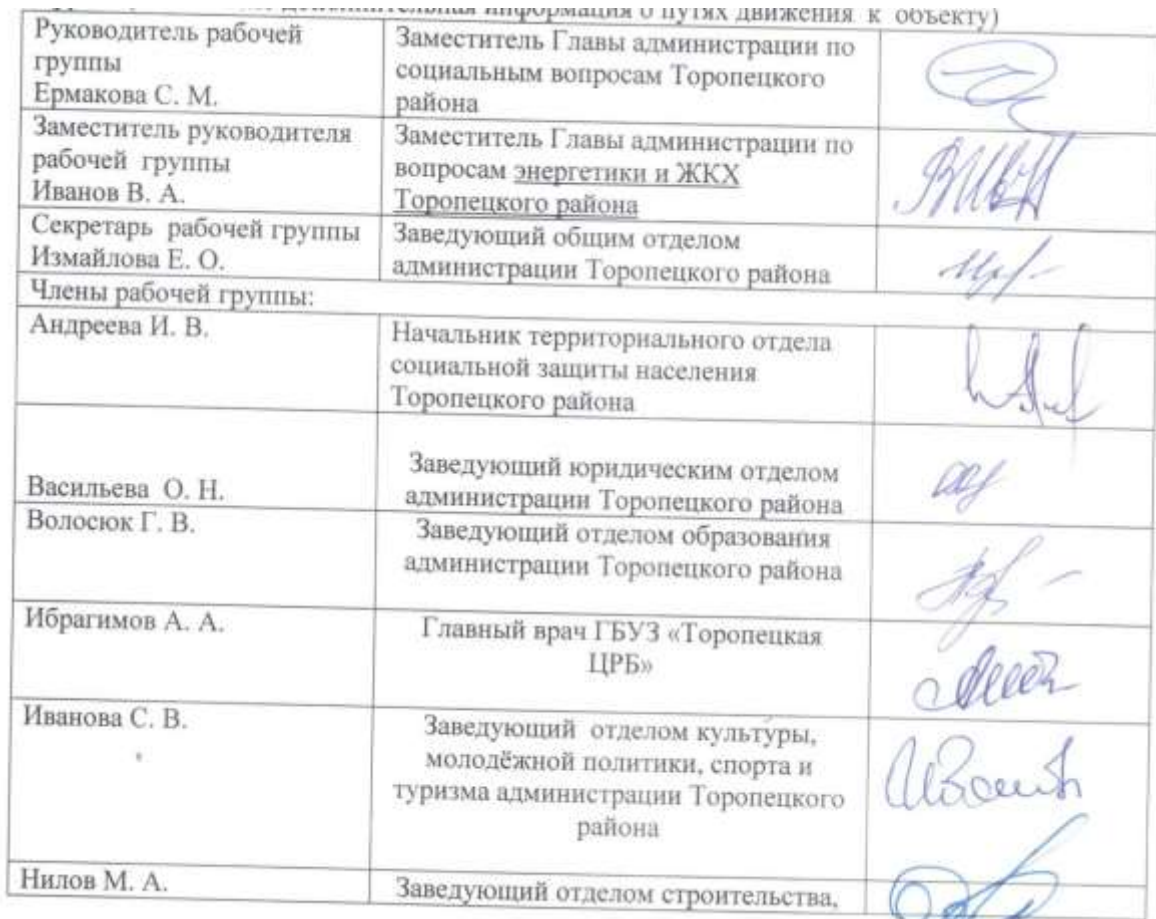 дополнительная информация о путях движения к объекту)
Руководитель рабочей
группы
Ермакова С. М.
Заместитель Главы администрации по
социальным вопросам Торопецкого
района
Заместитель руководителя
рабочей группы
Иванов В. А.
Заместитель Главы администрации по
вопросам энергетики и ЖКХ
Торопецкого района
Секретарь рабочей группы
Измайлова Е. О.
Заведующий общим отделом
администрации Торопецкого района
Члены рабочей группы:
Андреева И. В.
Начальник территориального отдела
социальной защиты населения
Торопецкого района
Васильева О. Н.
Заведующий юридическим отделом
администрации Торопецкого района
Волосюк Г. В.
Заведующий отделом образования
администрации Торопецкого района
Ибрагимов А. А.
Главный врач ГБУЗ «Торопецкая
ЦРБ»
Иванова С. В.
Заведующий отделом культуры,
молодёжной политики, спорта и
туризма администрации Торопецкого
района
Нилов М. А.
Заведующий отделом строительства,